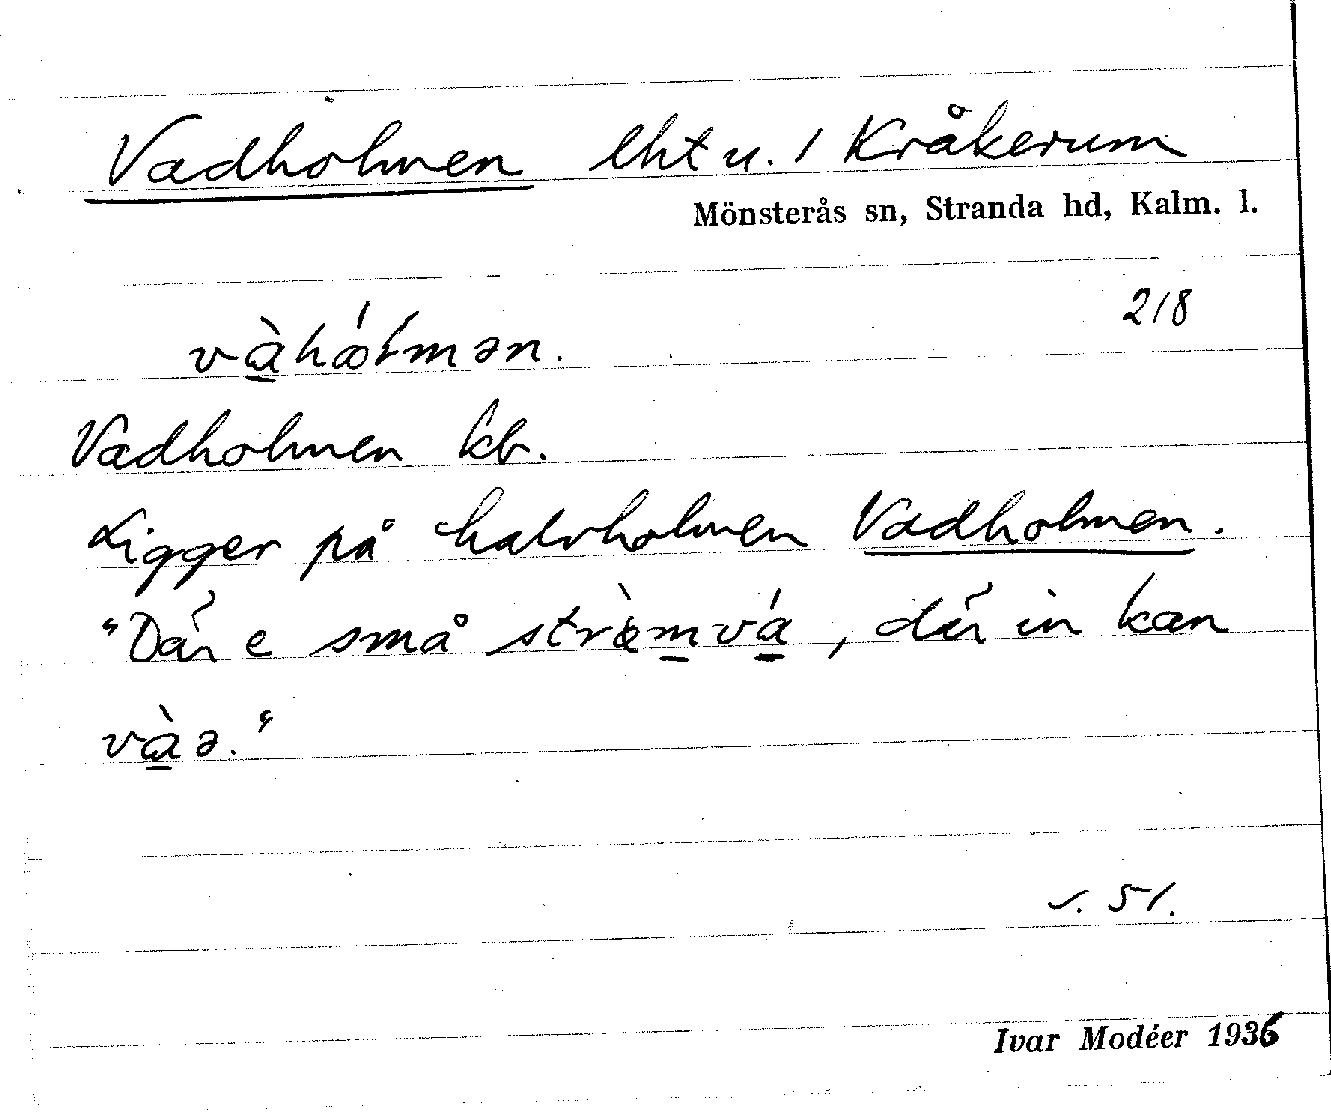 Vadholmen lht u. 1 Kråkerum
Mönsterås sn, Stranda hd, Kalm. l.
218
Vadholmen kb.
Ligger på halvholmen Vadholmen.
"Där e små strèmvá, där in kan
vàə."
s. 51.
Ivar Modéer 1936